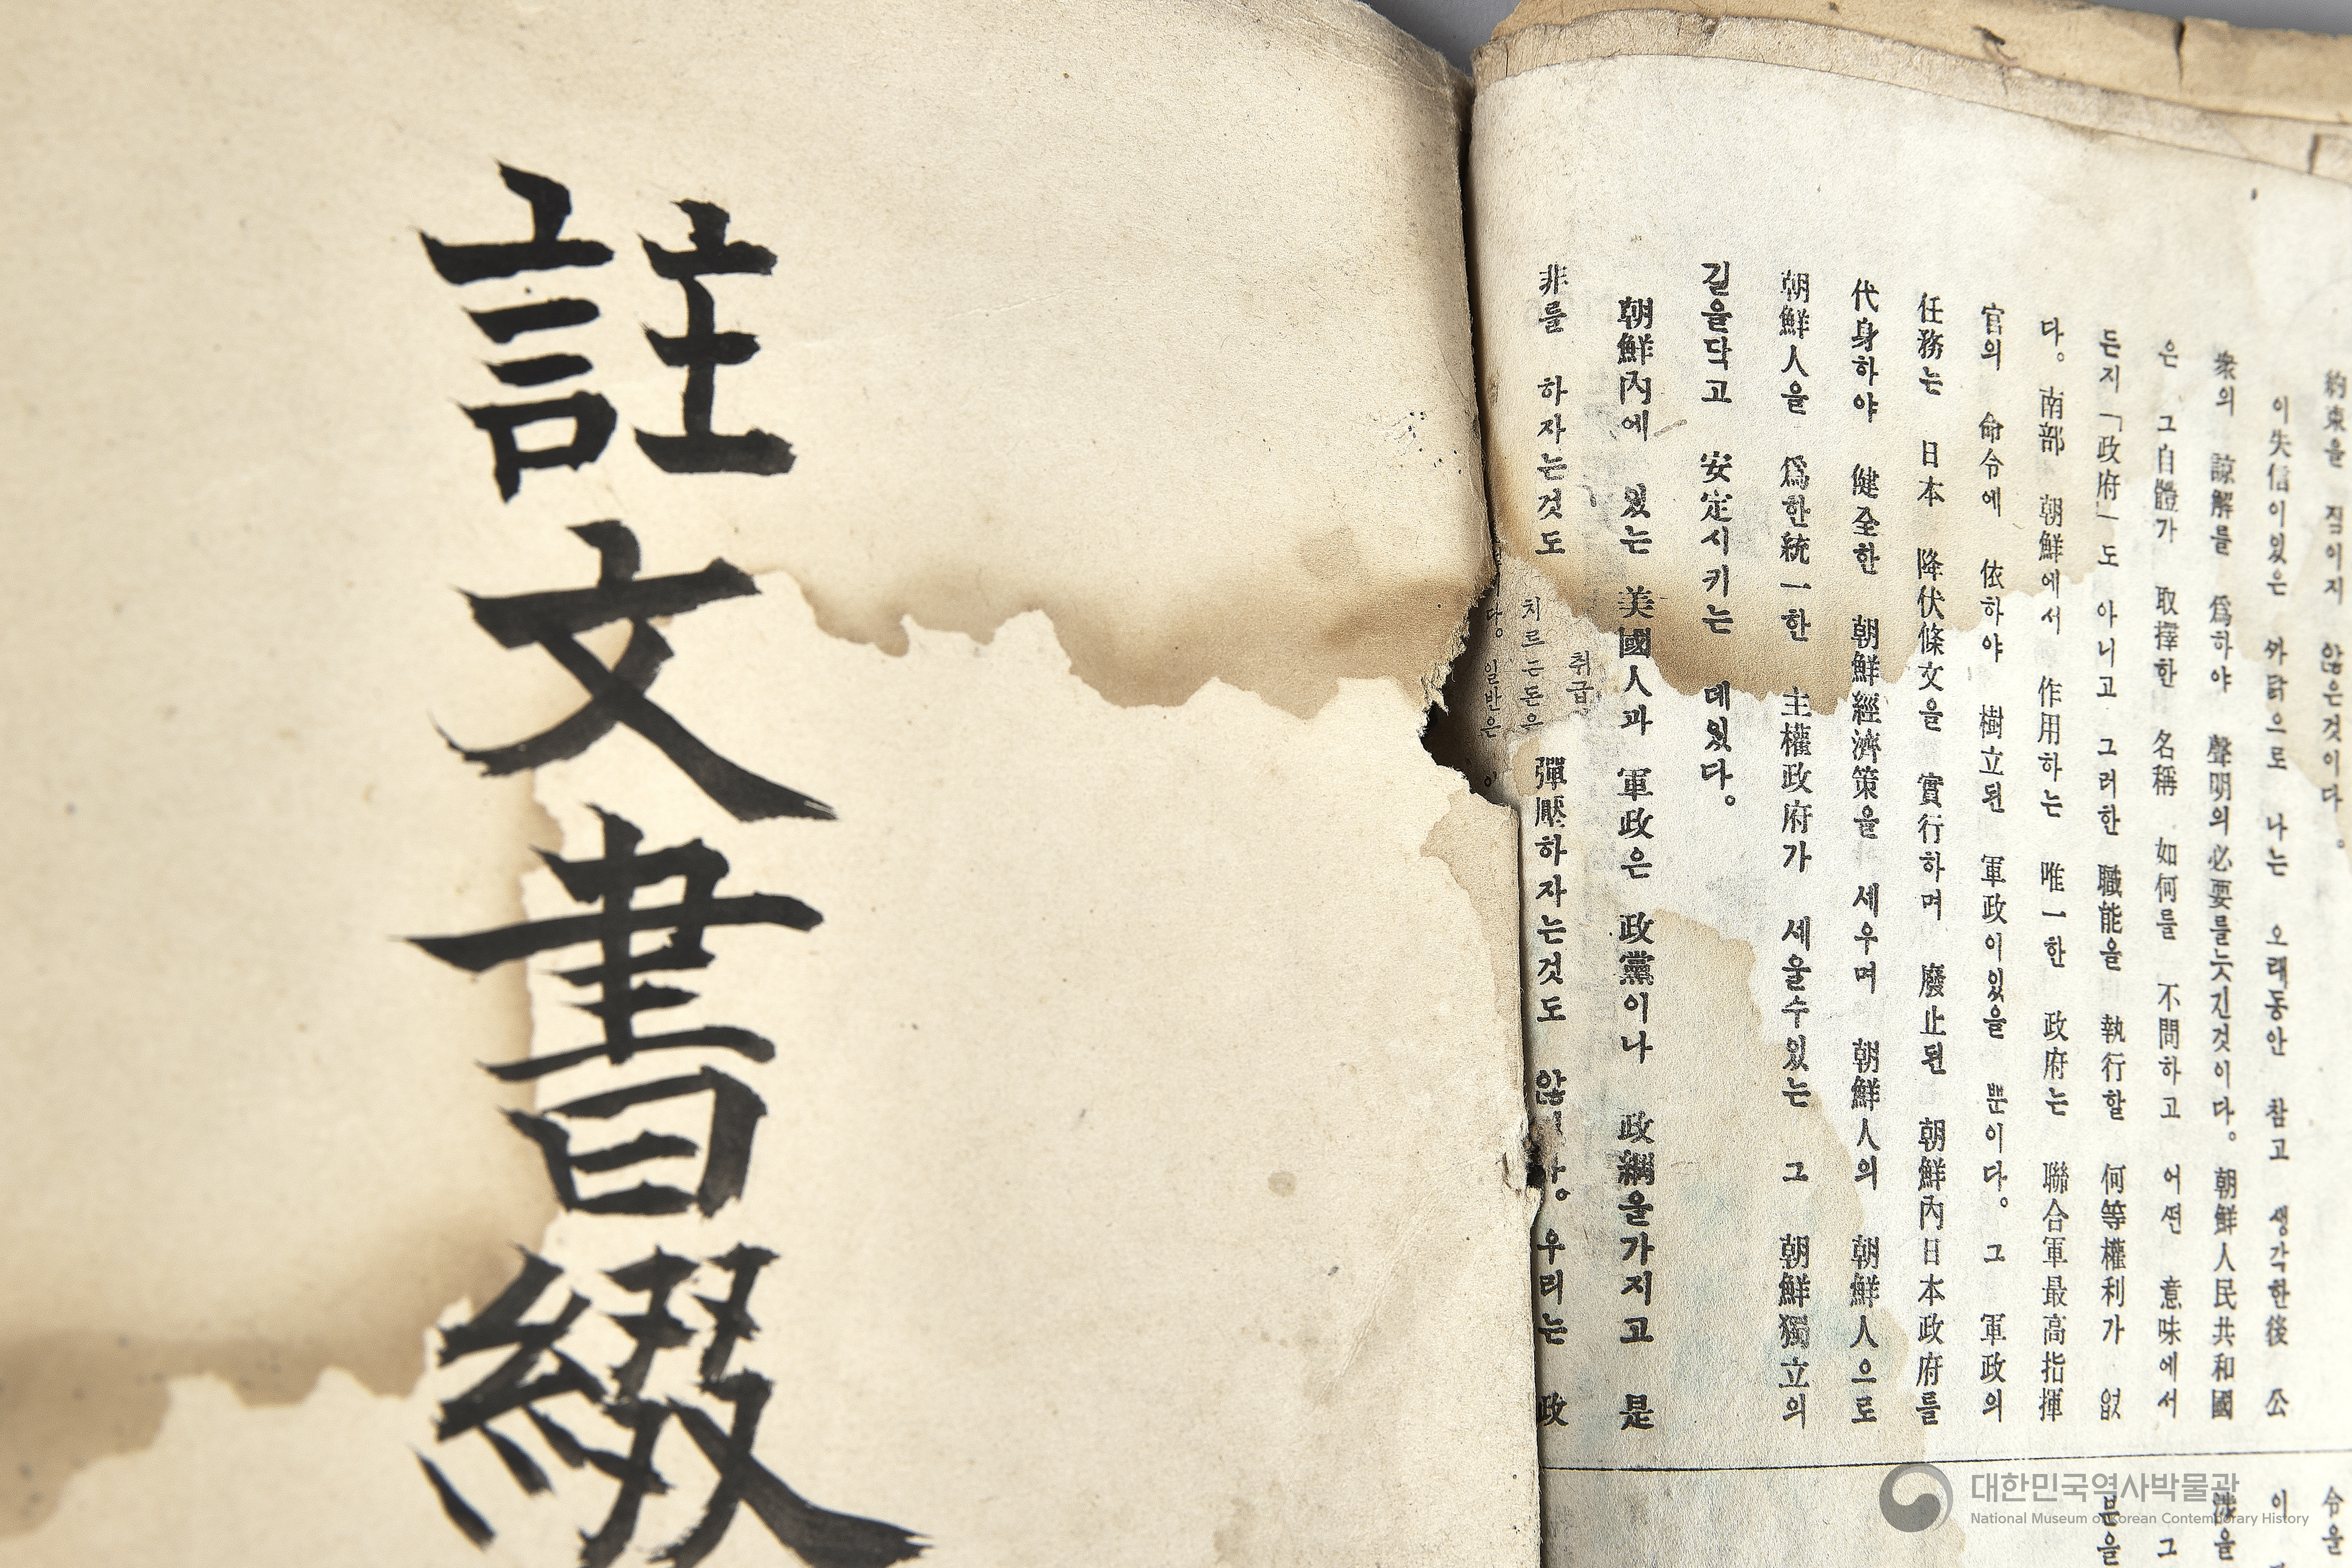 註文書綴
約束을 직이지 않은것이다。
이失信이있은 까닭으로 나는 오래동안 참고 생각한後 公
衆의 諒解를 爲하야 聲明의必要를늣긴것이다。朝鮮人民共和國
은 그自體가 取擇한 名稱 如何를 不問하고 어떤 意味에서
든지「政府」도 아니고 그러한 職能을 執行할 何等權利가 없
다。南部 朝鮮에서 作用하는 唯一한 政府는 聯合軍最高指揮
官의 命令에 依하야 樹立된 軍政이있을 뿐이다。그 軍政의
任務는 日本 降伏條文을 實行하며 廢止된 朝鮮內日本政府를
代身하야 健全한 朝鮮經濟策을 세우며 朝鮮人의 朝鮮人으로
朝鮮人을 爲한統一한 主權政府가 세울수있는 그 朝鮮獨立의
길을닥고 安定시키는 데있다。
朝鮮內에 있는 美國人과 軍政은 政黨이나 政綱을가지고 是
非를 하자는것도 彈壓하자는것도 우리는 政
취급
치르는돈으
다。 일반은
令을
이
涉을
그
대한민국역사박물관
National Museum of Korean Contemporary History